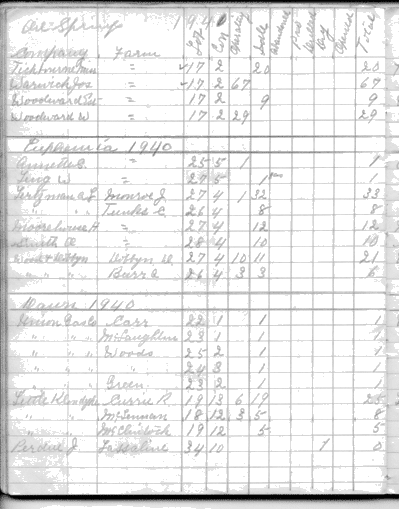 Oil Spring 1940
Company Farm Lot Con Drilling Wells Abandoned Pro Declared Dry Total
Tichbourne = 17 2 20 20
Warwick Jos = 17 2 67 67
Woodward Est = 17 2 9 9
Woodward W = 17 2 29 29
Euphemia 1940
Annett C. = 25 5 1 1
Ling W = 27 5 1 gas 1
Monroe J 27 4 1 32 33
" " " C. 26 4 8 8
Moorehouse H = 27 4 12 12
Smith A = 28 4 10 10
27 4 10 11 21
" " " Burr A 26 4 3 3 6
Dawn 1940
Union Gas Co Carr 22 1 1 1
" " " McLaughlin 23 1 1 1
" " " Woods 25 2 1 1
" " " 24 3 1 1
" " " Green 23 2 1 1
Little Klondyke Currie R 19 13 6 19 25
" " McLennan 18 12 3 5 8
" " McClintock 19 12 5 5
Perdue J. Lassaline 34 10 1 0